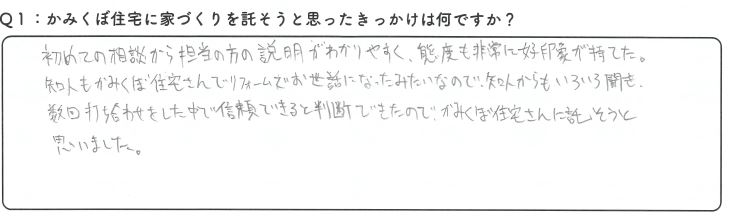 Q1：かみくぼ住宅に家づくりを託そうと思ったきっかけは何ですか？
初めての相談から担当の方の説明がわかりやすく、態度も非常に好印象が持てた。
知人もかみくぼ住宅さんでリフォームでお世話になったみたいなので、知人からもいろいろ聞き、
数回打ち合わせをした中で信頼できると判断できたので、かみくぼ住宅さんに託そうと
思いました。